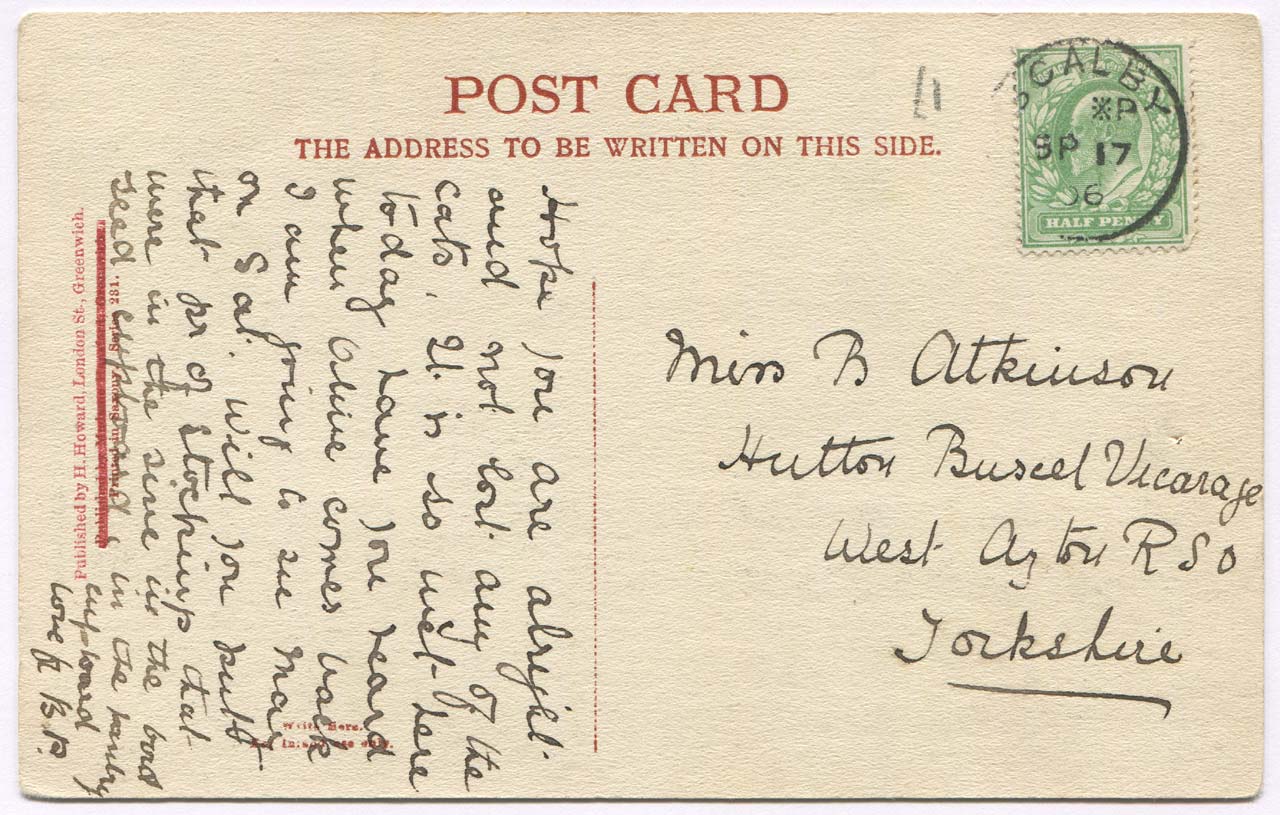 POST CARD
THE ADDRESS TO BE WRITTEN ON THIS SIDE.
SCALBY
※P
SP 17
06
HALF PENNY
Hope you are alright
and not lost any of the
cats. It is so wet here
today have you heard
when Olive comes back
I am going to see May
on Sat. Will you putt
that pr of stockings that
were in the in the
seed cupboard in the pantry
cupboard
love fr B.P.
Miss B Atkinson
Hutton Buscel Vicarage
West Ayton R S O
Yorkshire
Published by H. Howard, London St., Greenwich.
Printed in Saxony. 281.
Write Here.
For Inland use only.